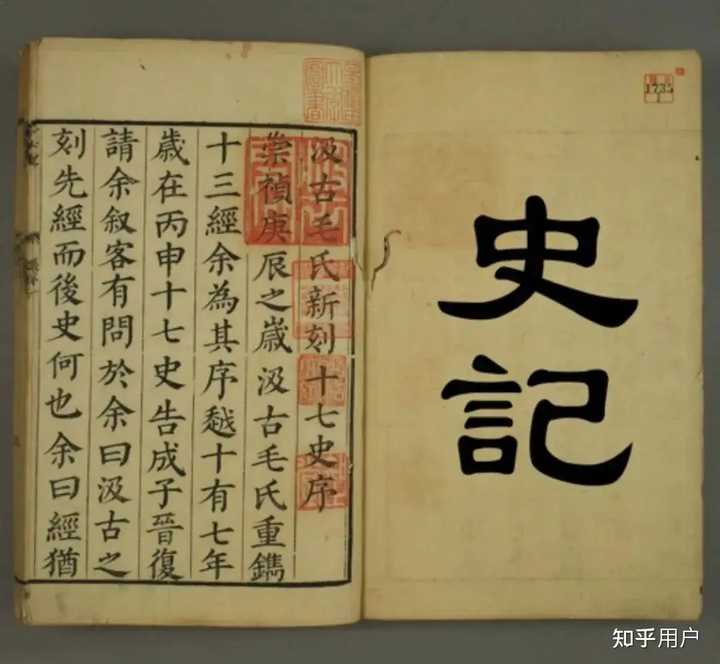 史記
汲古毛氏新刻十七史序
崇禎庚辰之歲汲古毛氏重鐫
十三經余為其序越十有七年
歲在丙申十七史告成子晉復
請余叙客有問於余曰汲古之
刻先經而後史何也余曰經猶
1735
1
知乎用户